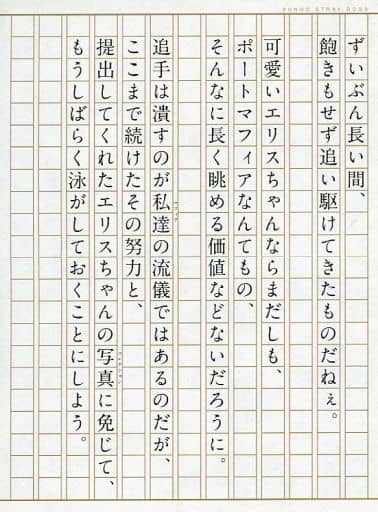 BUNGO STRAY DOGS
ずいぶん長い間、
飽きもせず追い駆けてきたものだねぇ。
可愛いエリスちゃんならまだしも、
ポートマフィアなんてもの、
そんなに長く眺める価値などないだろうに。
追手は潰すのが私達の流儀ではあるのだが、
ここまで続けたその努力と、
提出してくれたエリスちゃんの写真に免じて、
もうしばらく泳がしておくことにしよう。